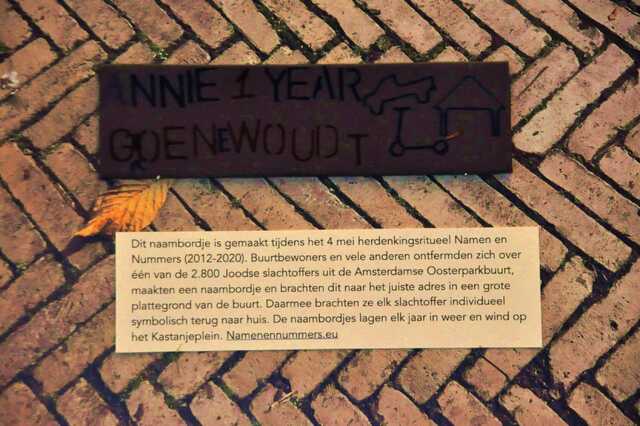 ANNIE 1 YEAR
GOENEWOUDT
Dit naambordje is gemaakt tijdens het 4 mei herdenkingsritueel Namen en
Nummers (2012-2020). Buurtbewoners en vele anderen ontfermden zich over
één van de 2.800 Joodse slachtoffers uit de Amsterdamse Oosterparkbuurt,
maakten een naambordje en brachten dit naar het juiste adres in een grote
plattegrond van de buurt. Daarmee brachten ze elk slachtoffer individueel
symbolisch terug naar huis. De naambordjes lagen elk jaar in weer en wind op
het Kastanjeplein. Namenennummers.eu